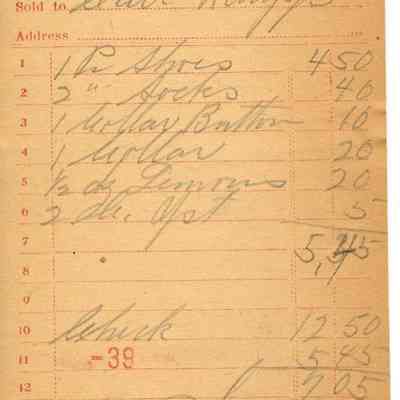 Sold to
Address
1 1 Pr Shoes 4 50
2 2 " Socks 40
3 1 Collar Button 10
4 1 Collar 20
5 1/2 dz Lemons 20
6 2 Yst 5
7 5,45
8
9
10 Check 12 50
11 -39 5 45
12 7 05